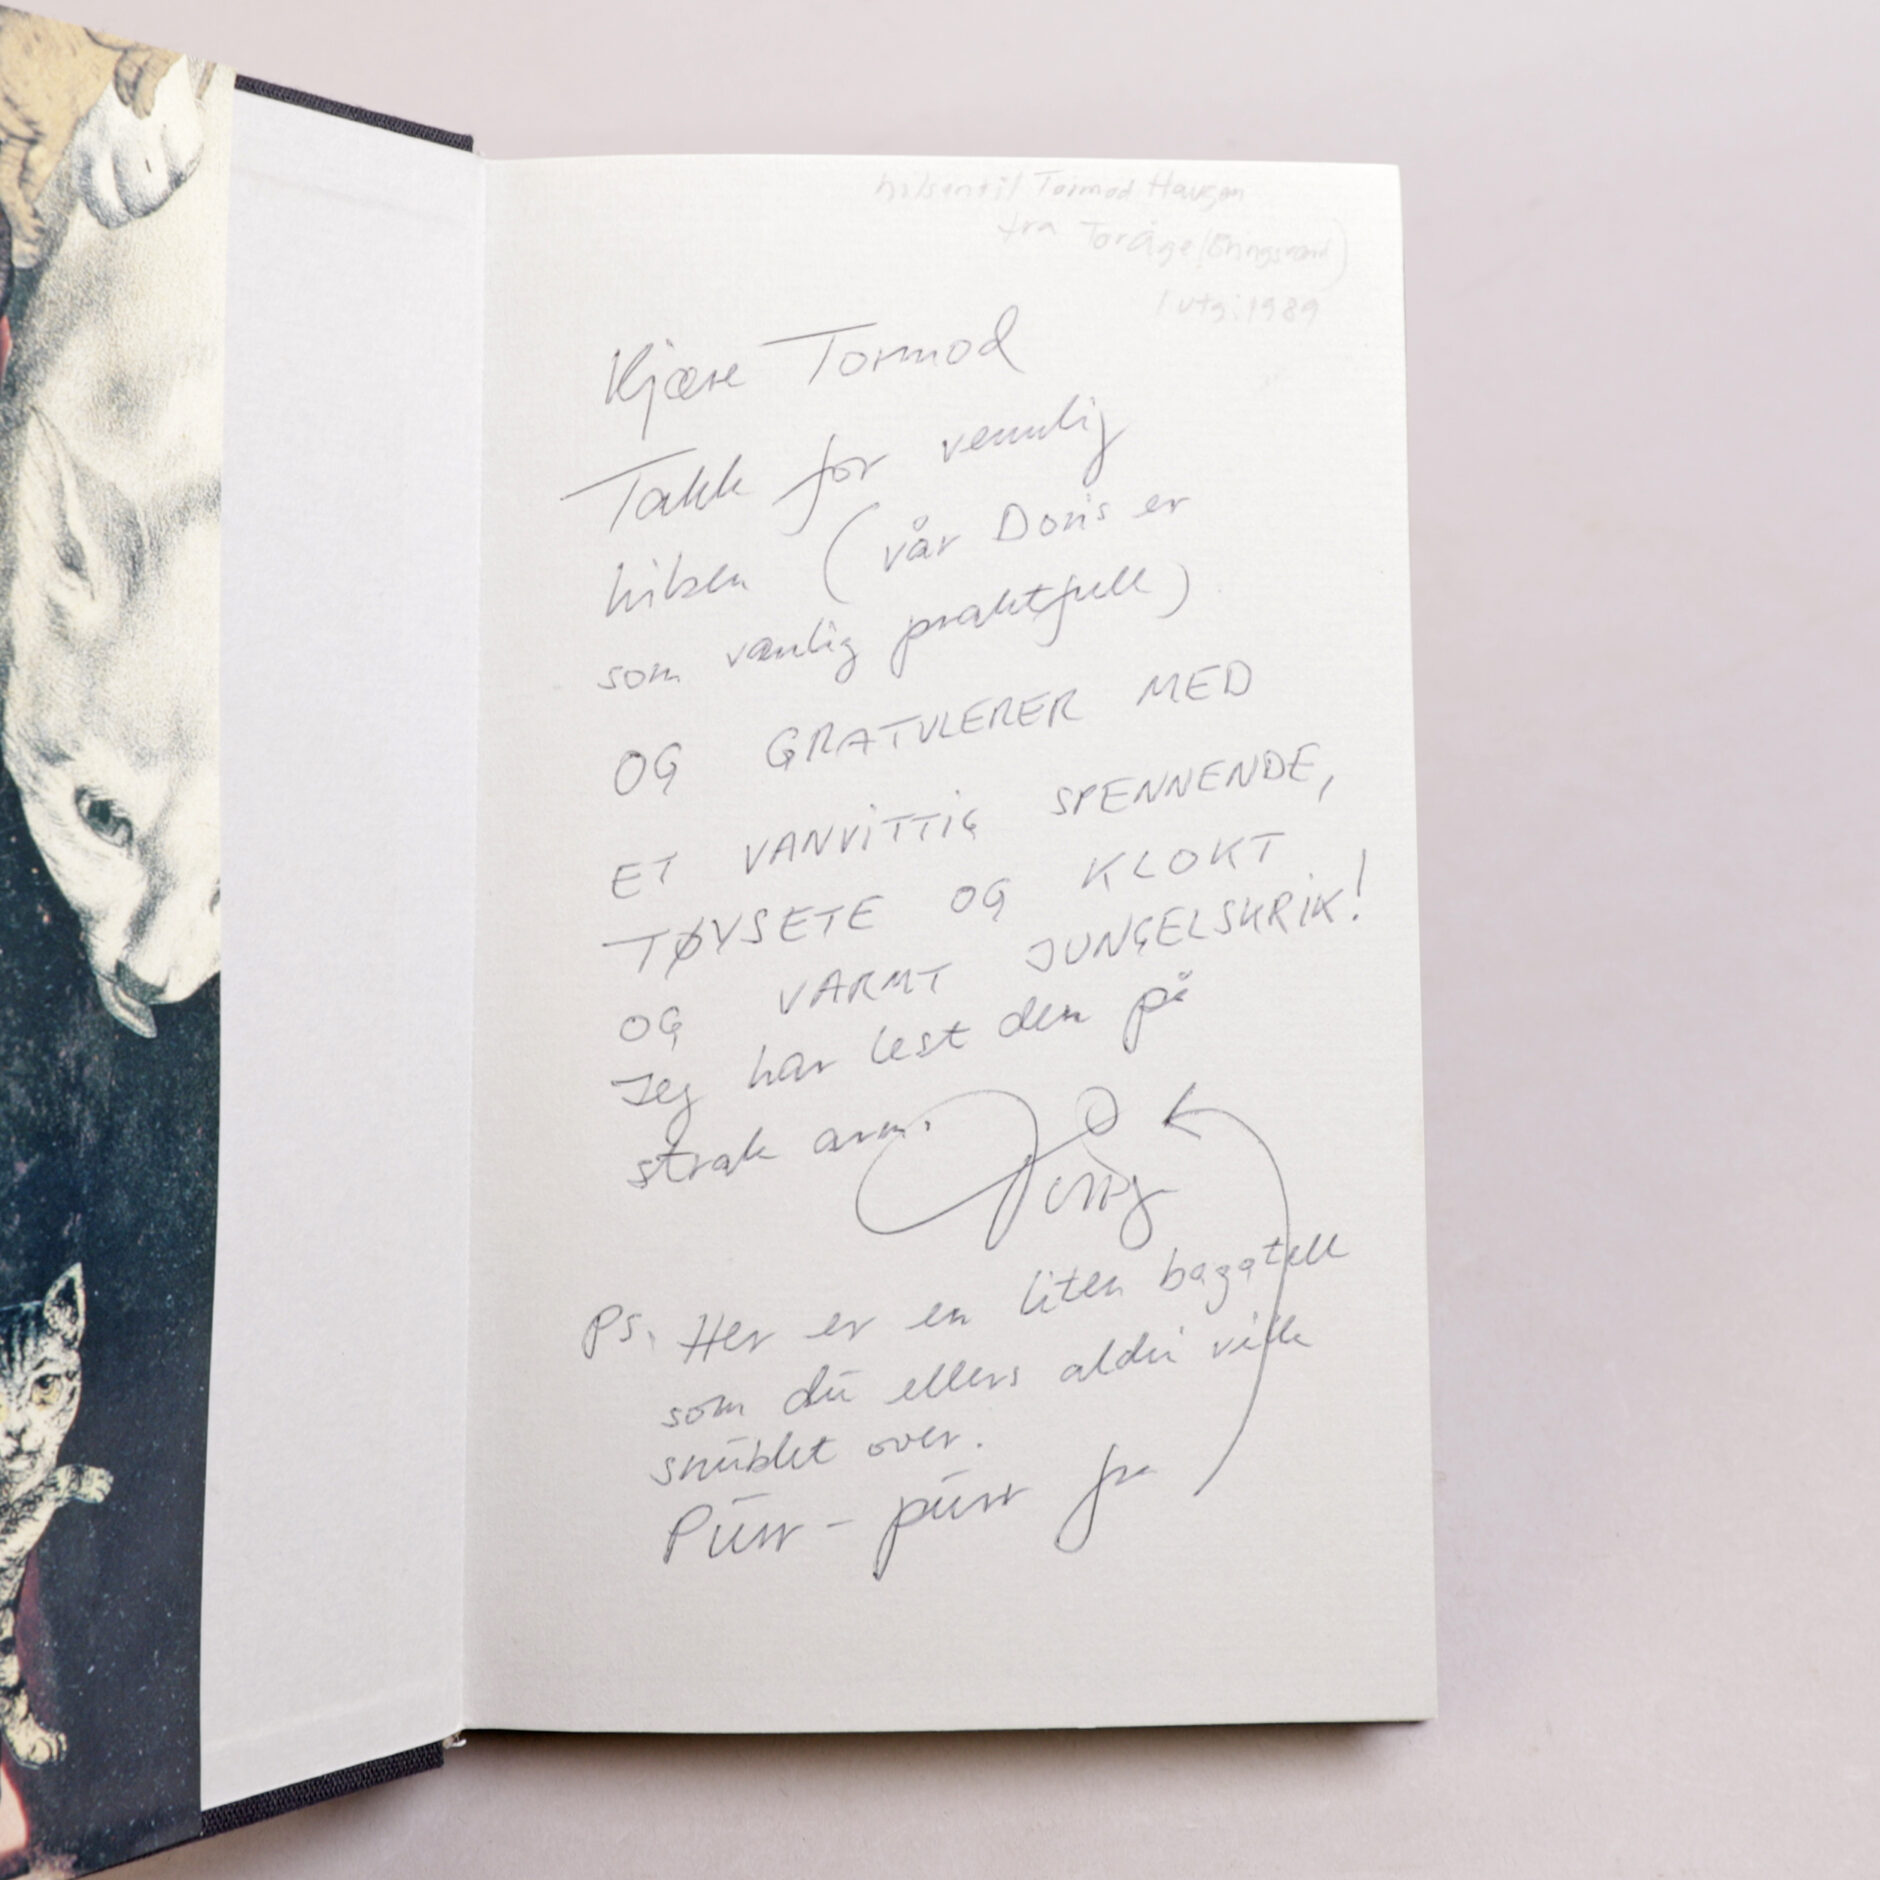 hilsen til Tormod Haugen
fra Tor Åge (Bringsværd)
1 utg. 1989
Kjære Tormod
Takk for vennlig
hilsen (vår Doris er
som vanlig praktfull)
OG GRATULERER MED
ET VANVITTIG SPENNENDE,
TØVSETE OG KLOKT
OG VARMT JUNGELSKRIK!
Jeg har lest den på
strak arm.
PS. Her er en liten bagatell
som du ellers aldri ville
snublet over.
Purr - purr fra